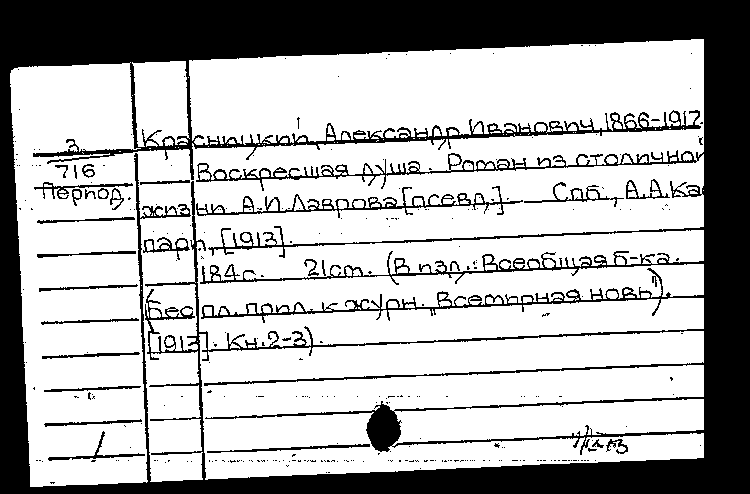 3.
716
Период.
Красницкий, Александр Иванович, 1866-1917.
Воскресшая душа. Роман из столичной
жизни А.И. Лаврова [псевд.]. Спб., А.А.Кас
пари, [1913].
184с. 21см. (В изд.: Всеобщая б-ка.
(Беспл. прил. к журн. "Всемирная новь").
[1913]. Кн.2-3).